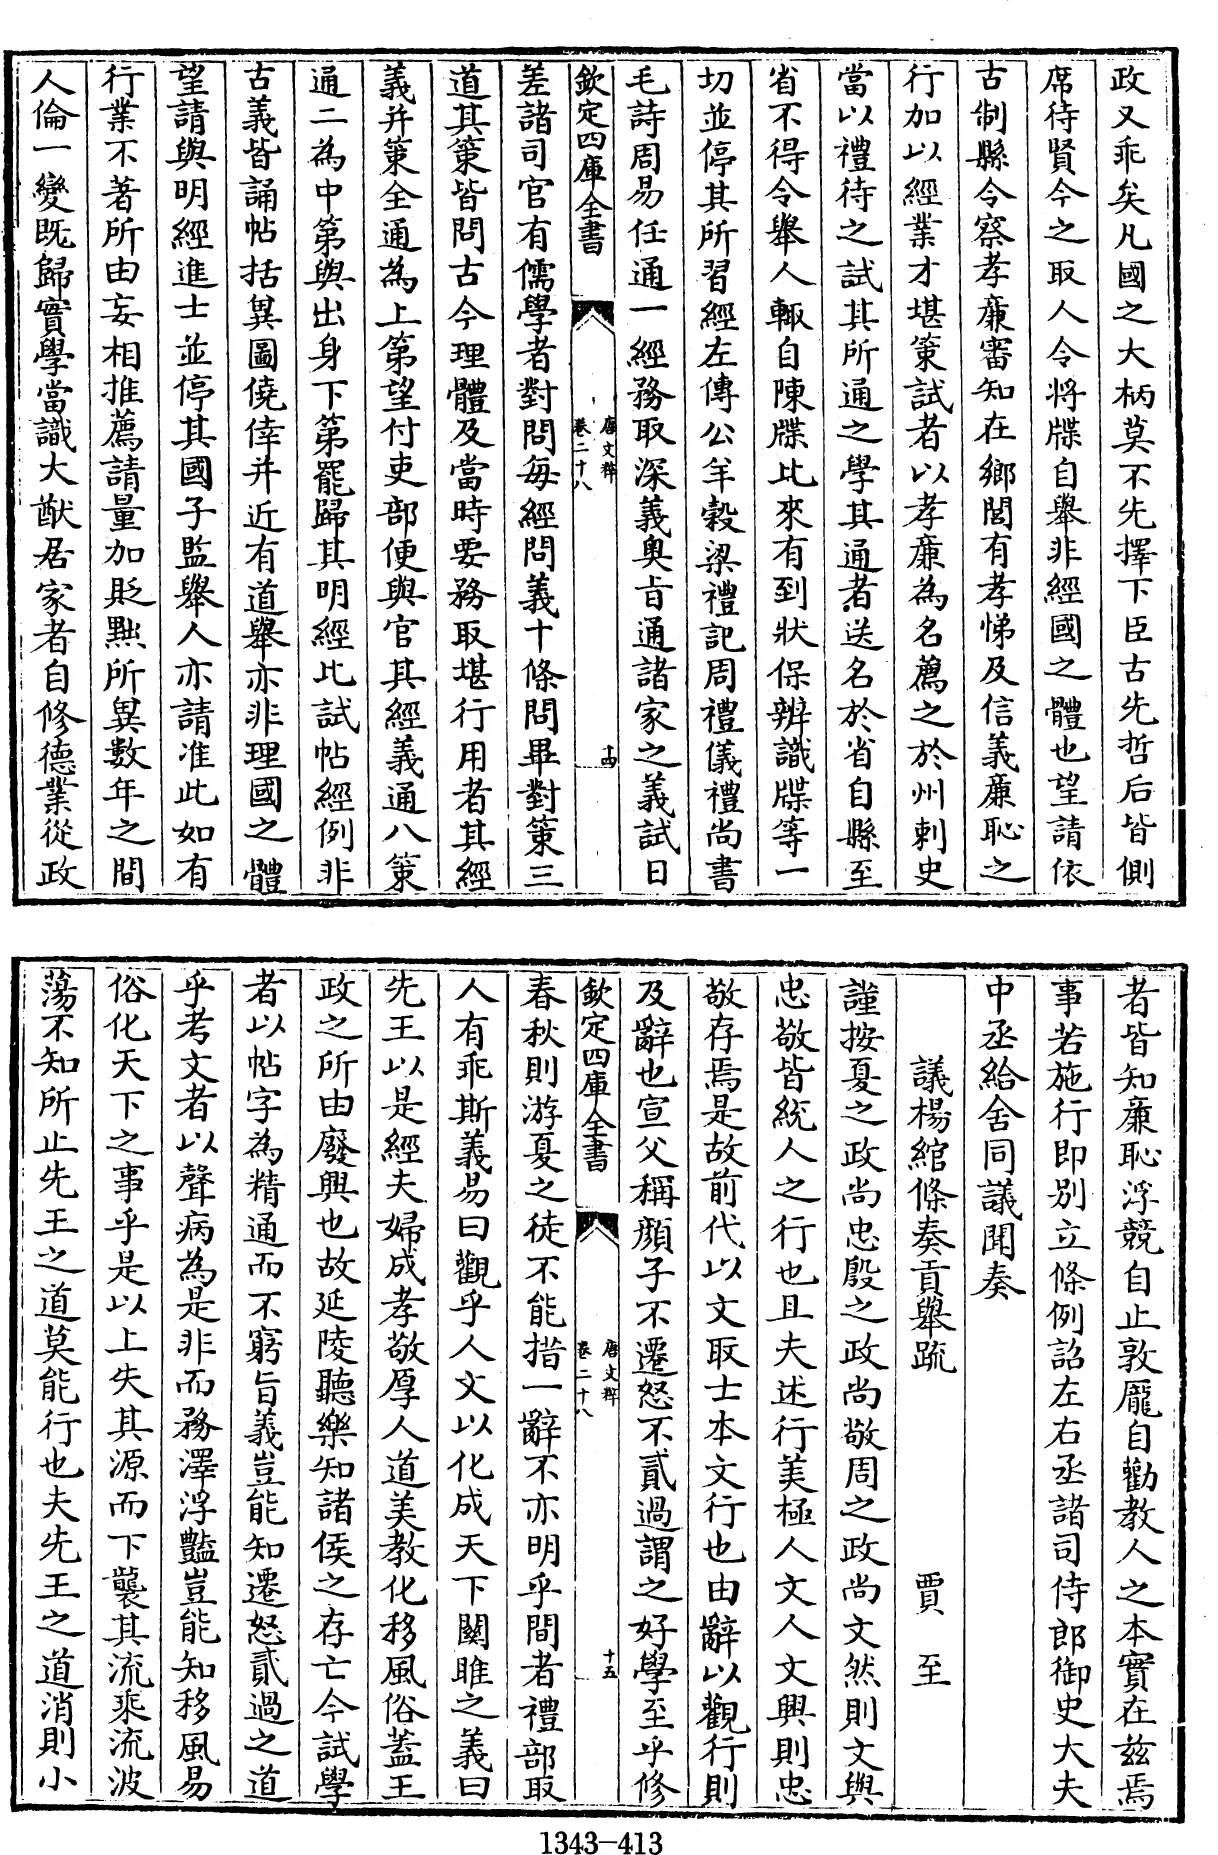 政又乖矣凡國之大柄莫不先擇下臣古先哲后皆側
席待賢今之取人令將牒自舉非經國之體也望請依
古制縣令察孝廉審知在鄉閭有孝悌及信義廉恥之
行加以經業才堪策試者以孝廉為名薦之於州刺史
當以禮待之試其所通之學其通者送名於省自縣至
省不得令舉人輙自陳牒比來有到狀保辨識牒等一
切並停其所習經左傳公羊穀梁禮記周禮儀禮尚書
毛詩周易任通一經務取深義奥旨通諸家之義試日
欽定四庫全書
唐文粹
卷二十八
十四
差諸司官有儒學者對問每經問義十條問畢對策三
道其策皆問古今理體及當時要務取堪行用者其經
義并策全通為上第望付吏部便與官其經義通八策
通二為中第與出身下第罷歸其明經比試帖經例非
古義皆誦帖括冀圖僥倖并近有道舉亦非理國之體
望請與明經進士並停其國子監舉人亦請准此如有
行業不著所由妄相推薦請量加貶黜所冀數年之間
人倫一變既歸實學當識大猷居家者自修德業從政
者皆知廉恥浮競自止敦龎自勸教人之本實在兹焉
事若施行即别立條例詔左右丞諸司侍郎御史大夫
中丞給舍同議聞奏
議楊綰條奏貢舉疏 賈至
謹按夏之政尚忠殷之政尚敬周之政尚文然則文與
忠敬皆統人之行也且夫述行美極人文人文興則忠
敬存焉是故前代以文取士本文行也由辭以觀行則
及辭也宣父稱顔子不遷怒不貳過謂之好學至乎修
欽定四庫全書
唐文粹
卷二十八
十五
春秋則游夏之徒不能措一辭不亦明乎間者禮部取
人有乖斯義易曰觀乎人文以化成天下關雎之義曰
先王以是經夫婦成孝敬厚人道美教化移風俗蓋王
政之所由廢興也故延陵聽樂知諸侯之存亡今試學
者以帖字為精通而不窮旨義豈能知遷怒貳過之道
乎考文者以聲病為是非而務澤浮豔豈能知移風易
俗化天下之事乎是以上失其源而下襲其流乘流波
蕩不知所止先王之道莫能行也夫先王之道消則小
1343-413